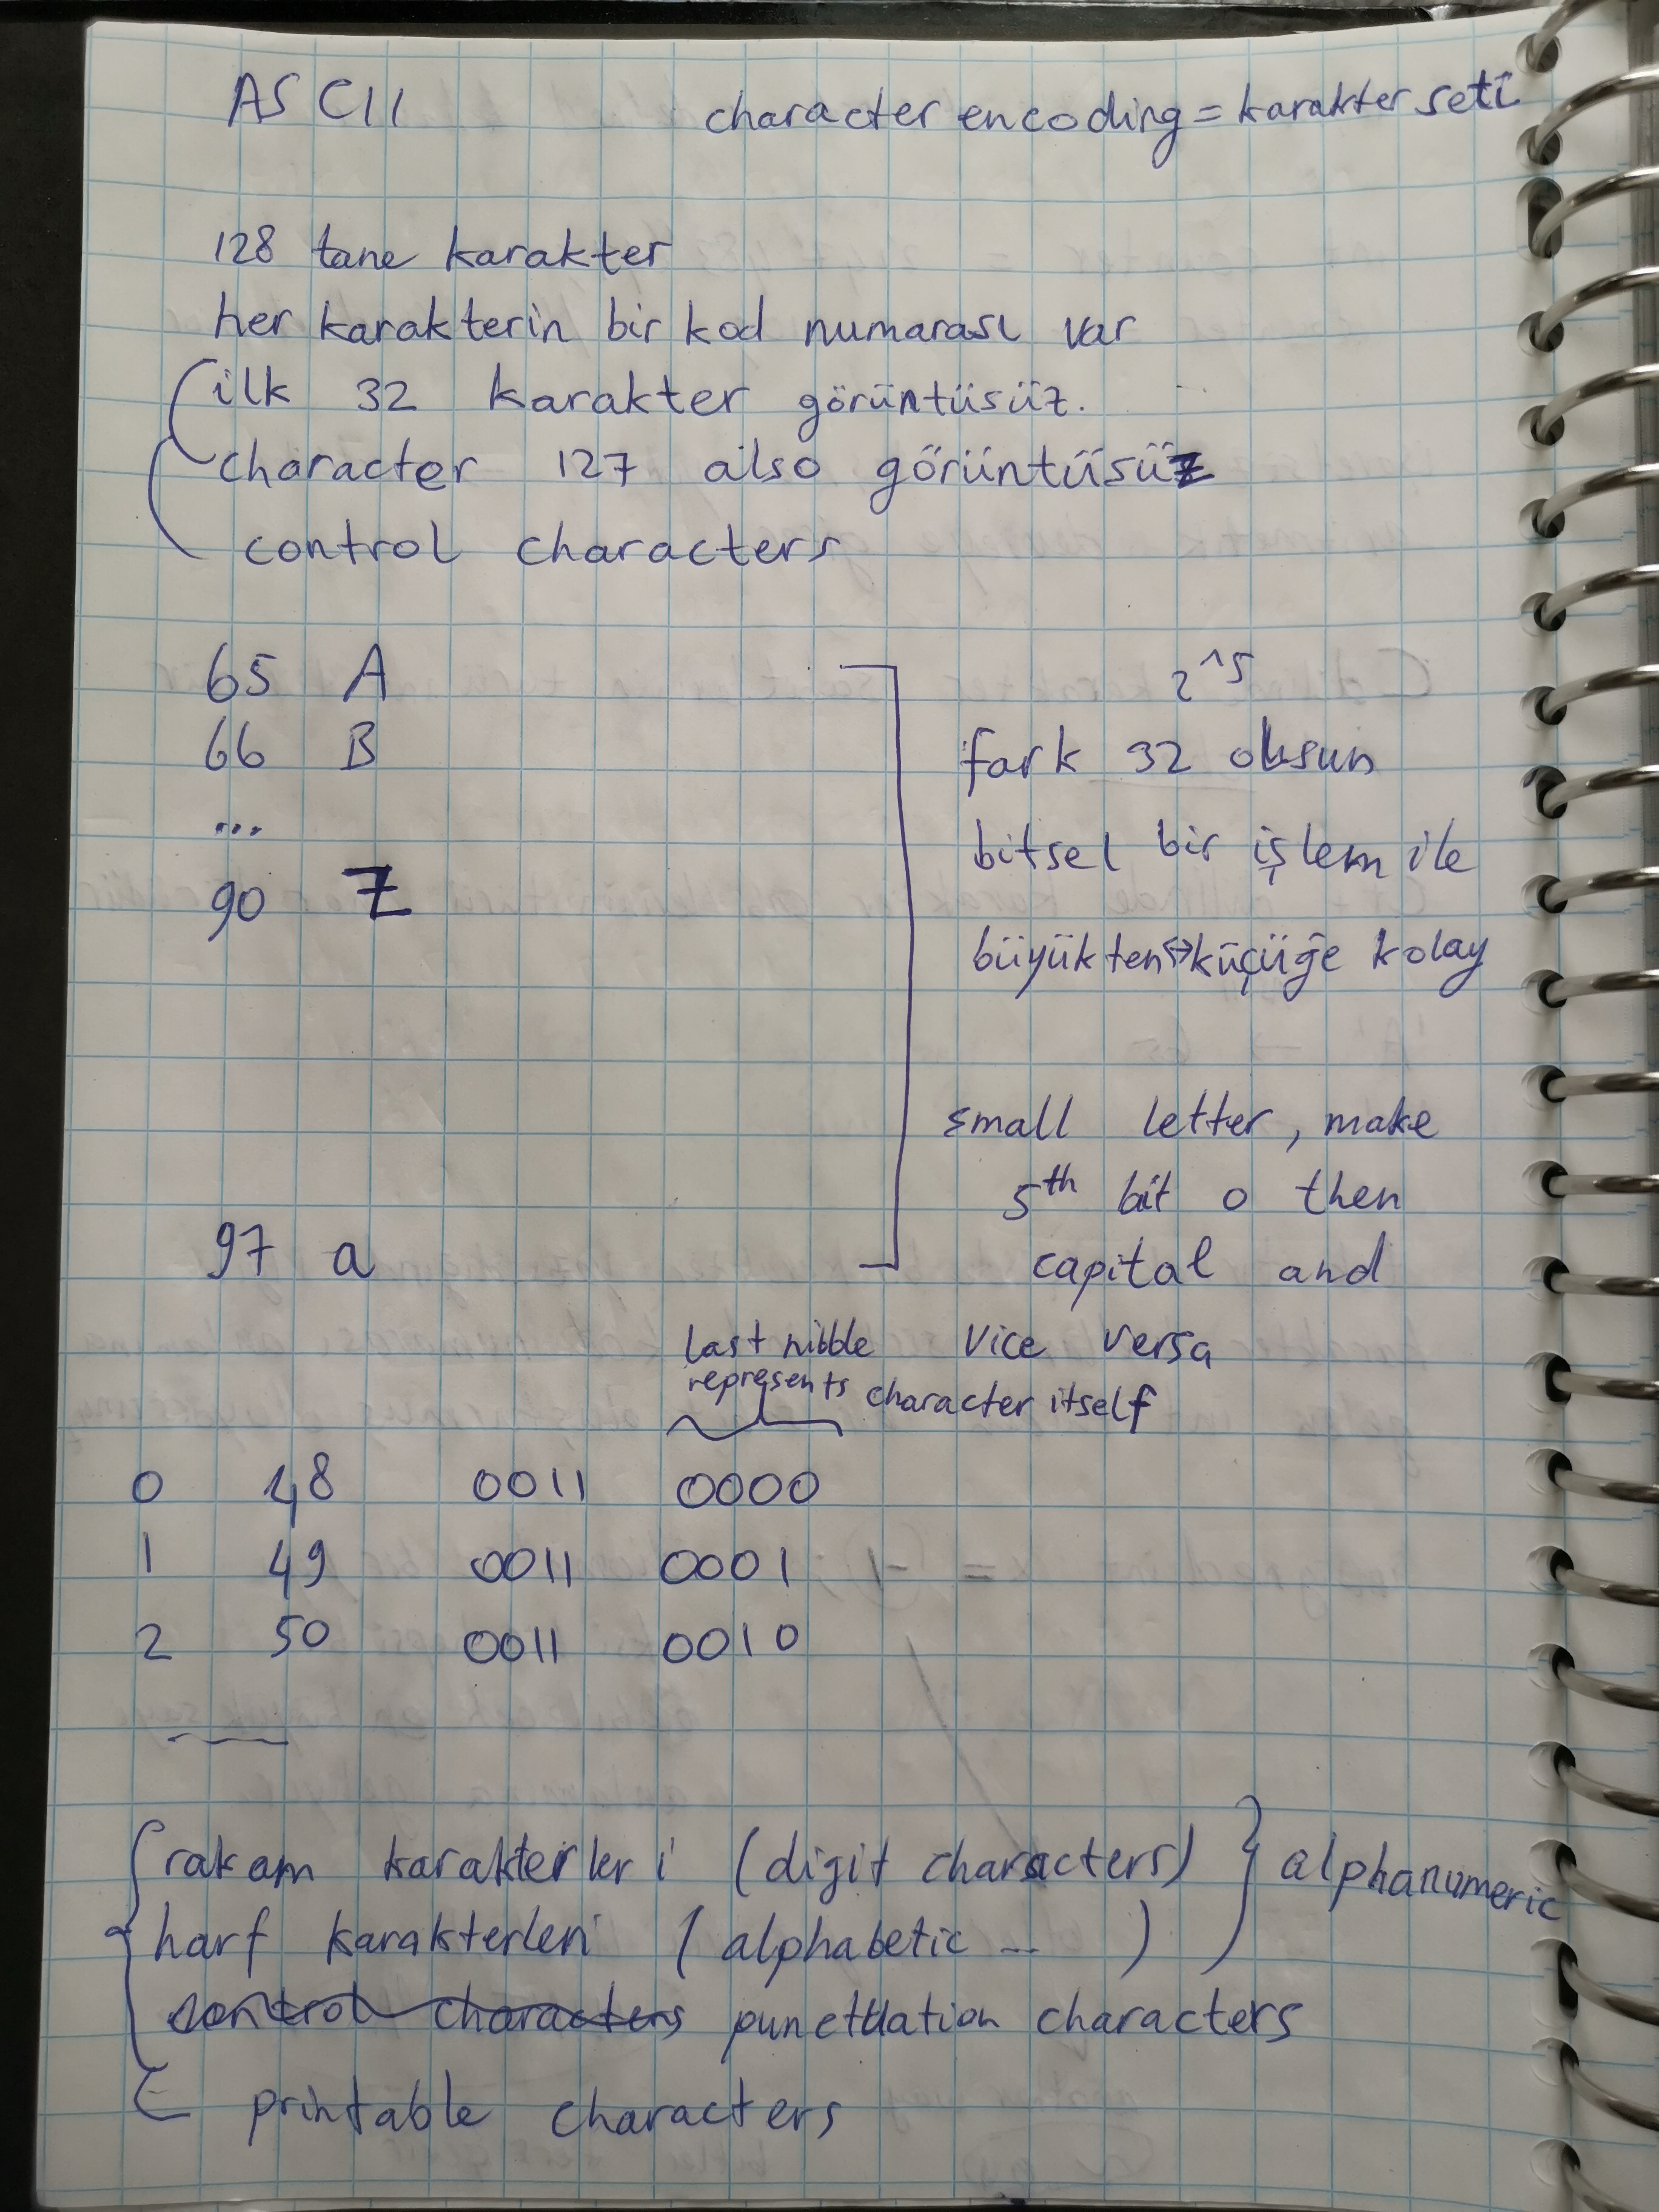 ASCII character encoding = karakter seti
128 tane karakter
her karakterin bir kod numarası var
ilk 32 karakter görüntüsüz.
character 127 also görüntüsüz
control characters
65 A
66 B
...
90 Z
97 a
2^5
fark 32 olsun
bitsel bir işlem ile
büyükten↔küçüğe kolay
small letter, make
5th bit 0 then
capital and
vice versa
last nibble
represents character itself
0 48 0011 0000
1 49 0011 0001
2 50 0011 0010
rakam karakterleri (digit characters)
harf karakterleri (alphabetic ... )
alphanumeric
control characters punctuation characters
printable characters